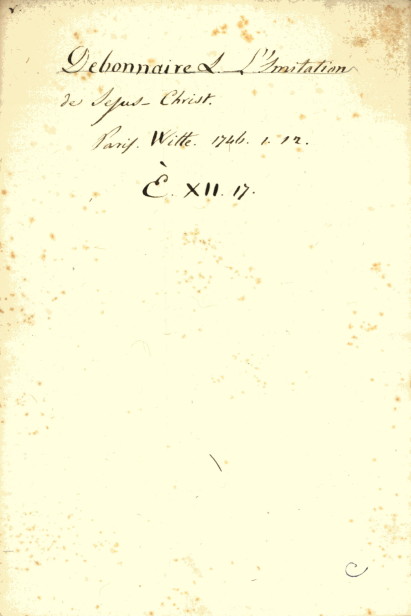 Debonnaire L. L'Imitation
de Jesus-Christ.
Paris. Witte. 1746. 1. 12.
È. XII. 17.